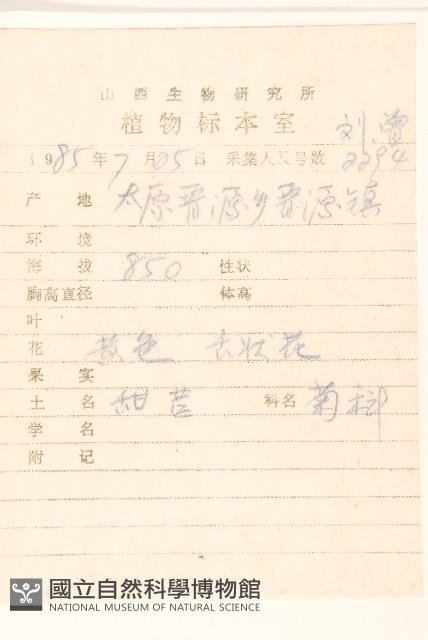 山西生物研究所
植物标本室
刘.曾
1985年7月25日 采集人及号数 2294
产地 太原晋源乡晋源镇
环境
海拔 850 性状
胸高直径 体高
叶
花 黄色 舌状花
果实
土名 甜苣 科名 菊科
学名
附记
國立自然科學博物館
NATIONAL MUSEUM OF NATURAL SCIENCE